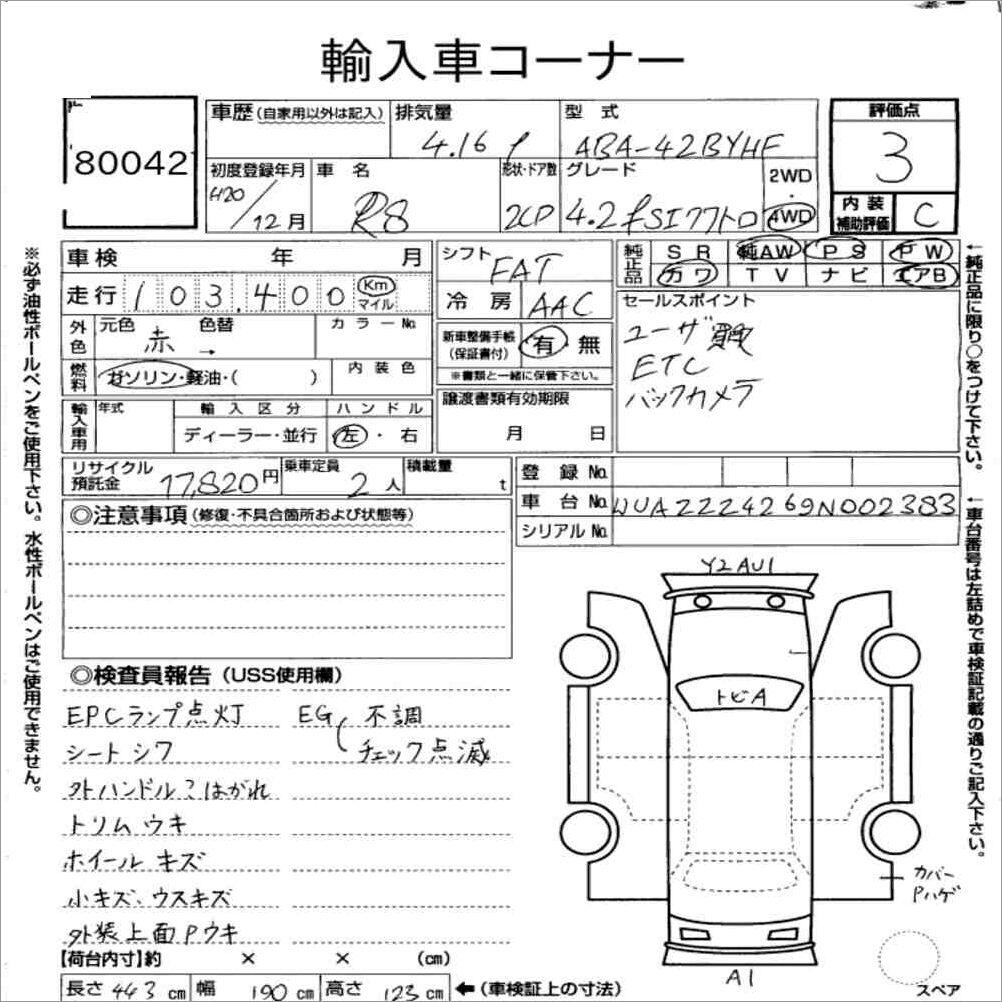 輸入車コーナー
80042
車歴 (自家用以外は記入) 排気量 型式 評価点
4.16 ℓ ABA-42BYHF 3
初度登録年月 車名 形状・ドア数 グレード 2WD・4WD
H20/12月 R8 2CP 4.2fSIクワトロ
内装補助評価 C
車検 年 月 シフト FAT
純正品 SR 純AW PS PW
カワ TV ナビ エアB
走行 103,400 Km マイル 冷房 AAC
セールスポイント
ユーザー買取
ETC
バックカメラ
外色 元色 赤 色替 → カラーNo.
新車整備手帳(保証書付) 有 無
※書類と一緒に保管下さい。
燃料 ガソリン・軽油・( ) 内装色
譲渡書類有効期限
月 日
輸入車用 年式 輸入区分 ハンドル
ディーラー・並行 左・右
リサイクル預託金 17,820円 乗車定員 2人 積載量 t
登録No.
車台No. WUAZZZ4269N002383
シリアルNo.
◎注意事項 (修復・不具合箇所および状態等)
◎検査員報告 (USS使用欄)
EPCランプ点灯 EG 不調
シートシワ チェック点滅
外ハンドルこはがれ
トリムウキ
ホイールキズ
小キズ、ウスキズ
外装上面Pウキ
Y2 AU1
トビA
カバー
Pハゲ
A1
スペア
【荷台内寸】約 × × (cm)
長さ 443 cm 幅 190 cm 高さ 123 cm ←(車検証上の寸法)
※必ず油性ボールペンをご使用下さい。水性ボールペンはご使用できません。
←純正品に限り○をつけて下さい。
←車台番号は左詰めで車検証記載の通りご記入下さい。